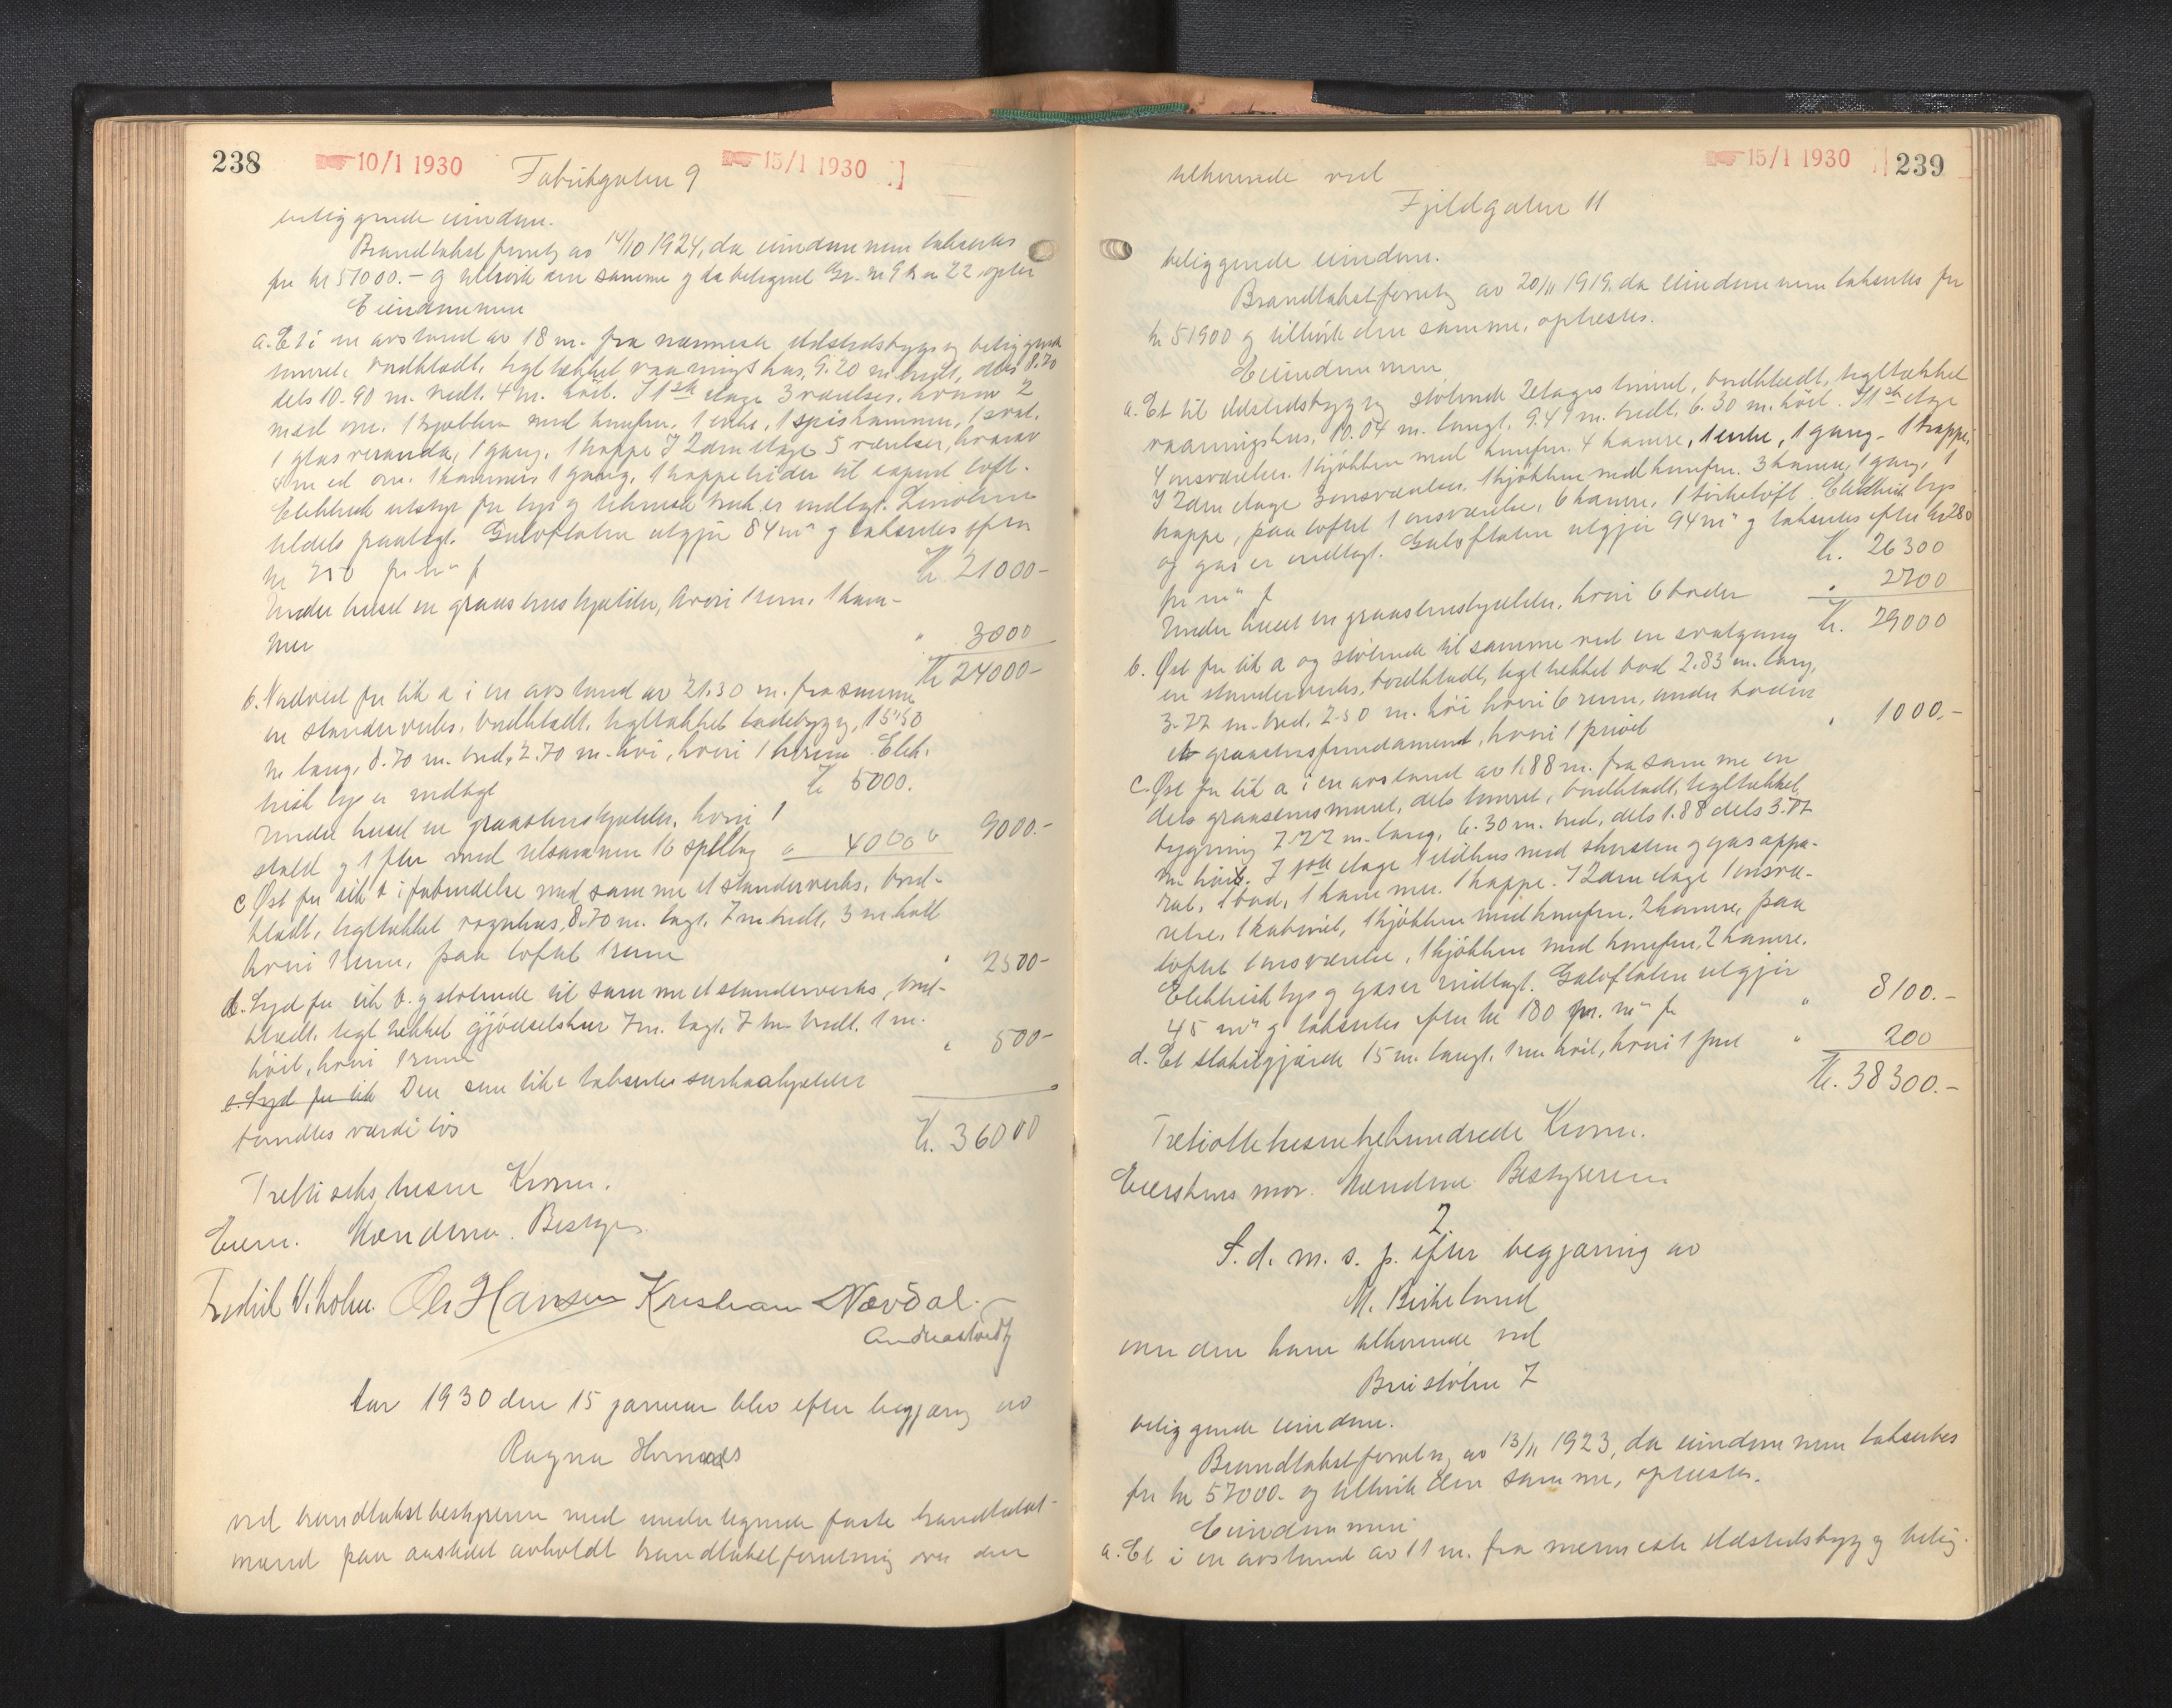 238
10/1 1930
Fabrikgaten 9
15/1 1930
beliggende eiendom.
Brandtakstforretn av 14/10 1924, da eiendommen takseredes
for kr 51000.- og tilhørte den samme og da betegnet Gr. nr 9 br nr 22 oplæ
Eiendommen
a. Et i en avstand av 18 m. fra nærmeste ildstedsbygg beliggende
tømret, bordklædt, tegltækket vaaningshus, 9.20 m bredt, dels 8.70
dels 10.90 m. bredt. 4 m. høit. I 1ste etage 3 værelser, hvorav 2
med ovn. 1 kjøkken med komfur. 1 entre, 1 spiskammer, 1 sval.
1 glasveranda, 1 gang. 1 trappe I 2den etage 5 værelser, hvorav
4 med ovn. 1 kammer 1 gang. 1 trappe leder til loft.
Elektrisk utstyr for lys og teknisk bruk er indlagt. Linoleum
tildels paalagt. Gulvflaten utgjør 84 m² og takseredes efter
kr 250 pr m² f
Kr 21000-
Under huset en graastenskjælder, hvori 1 rum. 1 kam-
mer
" 3000
Kr 24000-
b. Nordvest for lit a i en avstand av 21.30 m. fra samme
en standerverks, bordklædt, tegltækket ladebygg, 15.50
m lang, 8.70 m. bred, 2.70 m. høi, hvori 1 Elek-
trisk lys er indlagt
Kr 5000.
Under huset en graastenskjælder, hvori 1
stald og 1 flor med tilsammen 16 spiltaug
" 4000
9000.-
c. Øst for lit b i forbindelse med samme et standerverks, bord-
klædt, tegltækket vognhus, 8.70 m. lagt. 7 m bredt, 3 m høit
hvori 1 rum, paa loftet 1 rum
" 2500-
d. Syd for lit b. og støtende til samme et standerverks, bord-
klædt, tegltækket gjødselshus 7 m. lagt. 7 m bredt. 1 m.
høit, hvori 1 rum
" 500-
e. Syd for lit Den som lit e takserte surhaakjælder
fandtes værdiløs
Kr. 36000
Trettiseks tusen Kroner.
Eieren. Mændene. Bestyr.
Fredrik W. Holm. Ole Hansen Kristian Nævdal.

Aar 1930 den 15 januar blev efter begjæring av
Ragna
ved brandtakstbestyreren med undertegnede faste brandtakst-
mænd paa aastedet avholdt brandtakstforretning over den
15/1 1930
239
tilhørende ved
Fjeldgaten 11
beliggende eiendom.
Brandtakstforretn av 20/11 1919, da eiendommen takseredes for
kr 51900 og tilhørte den samme, oplæstes.
Eiendommen
a. Et til ildstedsbygg støtende 2etages tømret, bordklædt, tegltækket
vaaningshus, 10.04 m. langt, 9.41 m. bredt, 6.30 m. høit. I 1ste etage
4 ovnsværelser. 1 kjøkken med komfur. 4 kamre, 1 entre, 1 gang. 1 trappe,
I 2den etage 3 ovnsværelser. 1 kjøkken med komfur. 3 kamre, 1 gang. 1
trappe, paa loftet 1 ovnsværelse, 6 kamre, 1 tørkeloft. Elektrisk lys
og gas er indlagt. Gulvflaten utgjør 94 m² og takseredes efter kr 280
pr m² f
Kr. 26300
Under huset en graastenskjælder, hvori 6 boder
" 2700
Kr. 29000
b. Øst for lit a og støtende til samme ved en svalgang
en standerverks, bordklædt, tegltækket bod 2.83 m. lang,
3.77 m. bred, 2.50 m. høi hvori 6 rum, under boden
et graastensfundament, hvori 1 privet
" 1000.-
c. Øst for lit a i en avstand av 1.88 m. fra samme en
dels graastensmuret, dels tømret, bordklædt, tegltækket
bygning 7.22 m. lang, 6.30 m. bred, dels 1.88 dels 3.77
m høi. I 1ste etage 1 ildhus med skorsten og gasappa-
rat, 1 bod, 1 kammer. 1 trappe. I 2den etage 1 ovnsvæ-
relse, 1 kabinet, 1 kjøkken med komfur. 2 kamre, paa
loftet 1 ovnsværelse, 1 kjøkken med komfur, 2 kamre.
Elektrisk lys og gas er indlagt. Gulvflaten utgjør
45 m² og takseredes efter kr 180 pr. m² f
" 8100.-
d. Et stakitgjærde 15 m. langt, 1 m høit, hvori 1 port
" 200
Kr. 38300.-
Trettiotte tusentrehundrede Kroner.
Eierskens mor. Mændene Bestyreren
2.
S. d. m. s. p. efter begjæring av
M. Birkeland
over den ham tilhørende ved
7
beliggende eiendom.
Brandtakstforretn av 13/11 1923, da eiendommen takseredes
for kr 57000.- og tilhørte den samme, oplæstes.
Eiendommen
a. Et i en avstand av 11 m. fra nærmeste ildstedsbygg belig-